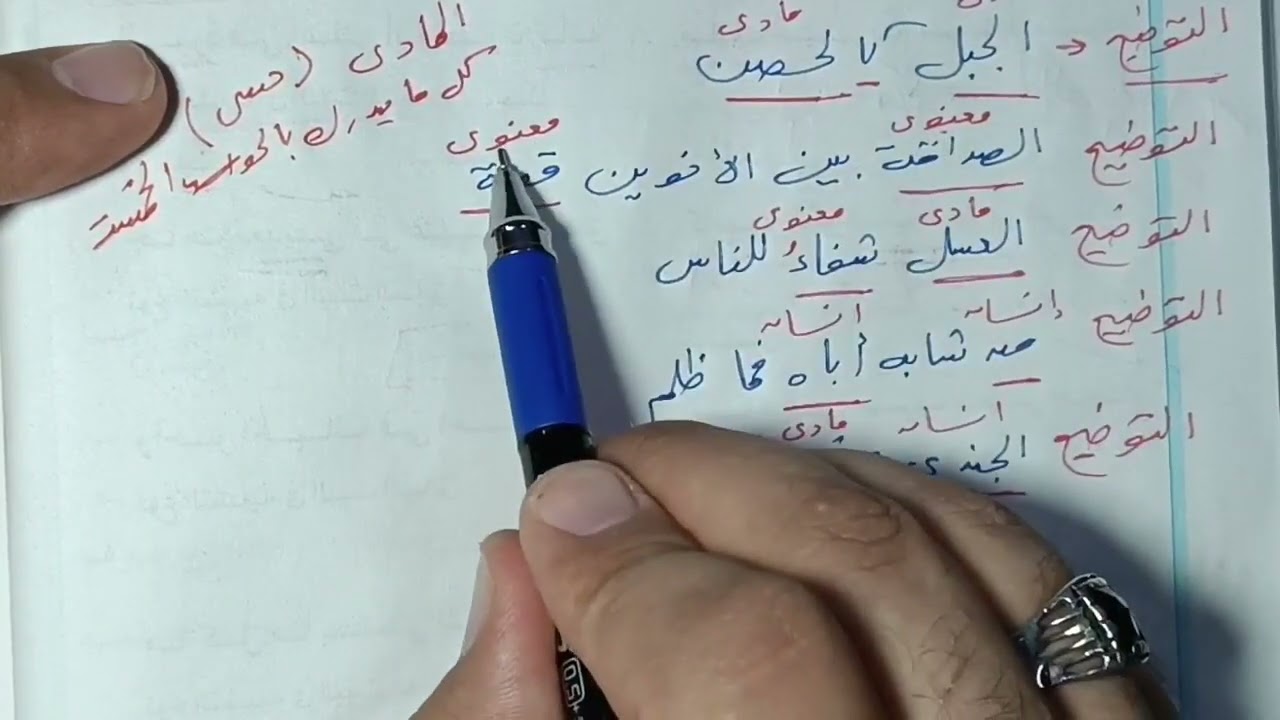 مادى
التوضيح ← الجبل كالحصن
معنوى معنوى
التوضيح الصداقة بين الأخوين قوة
مادى معنوى
التوضيح العسل شفاءٌ للناس
إنسان انسان
التوضيح من شابه أباه فما ظلم
انسان مادى
التوضيح الجندى
المادى (حسى)
كل ما يدرك بالحواس الخمسة
0.5